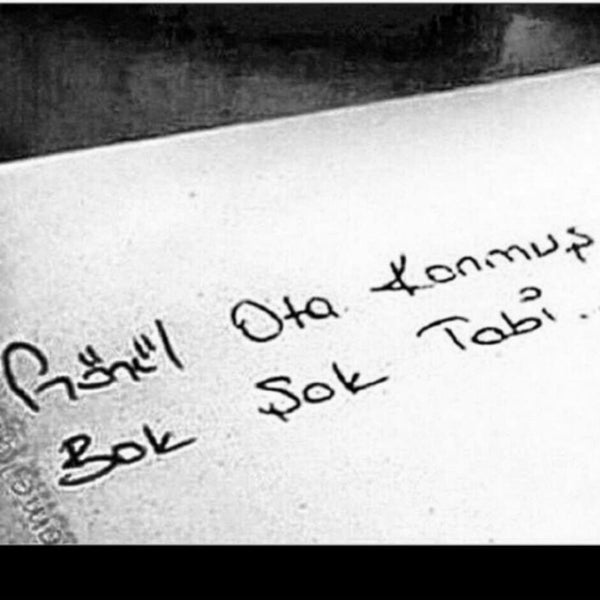 Gönül Ota Konmuş
Bok Şok Tabi..